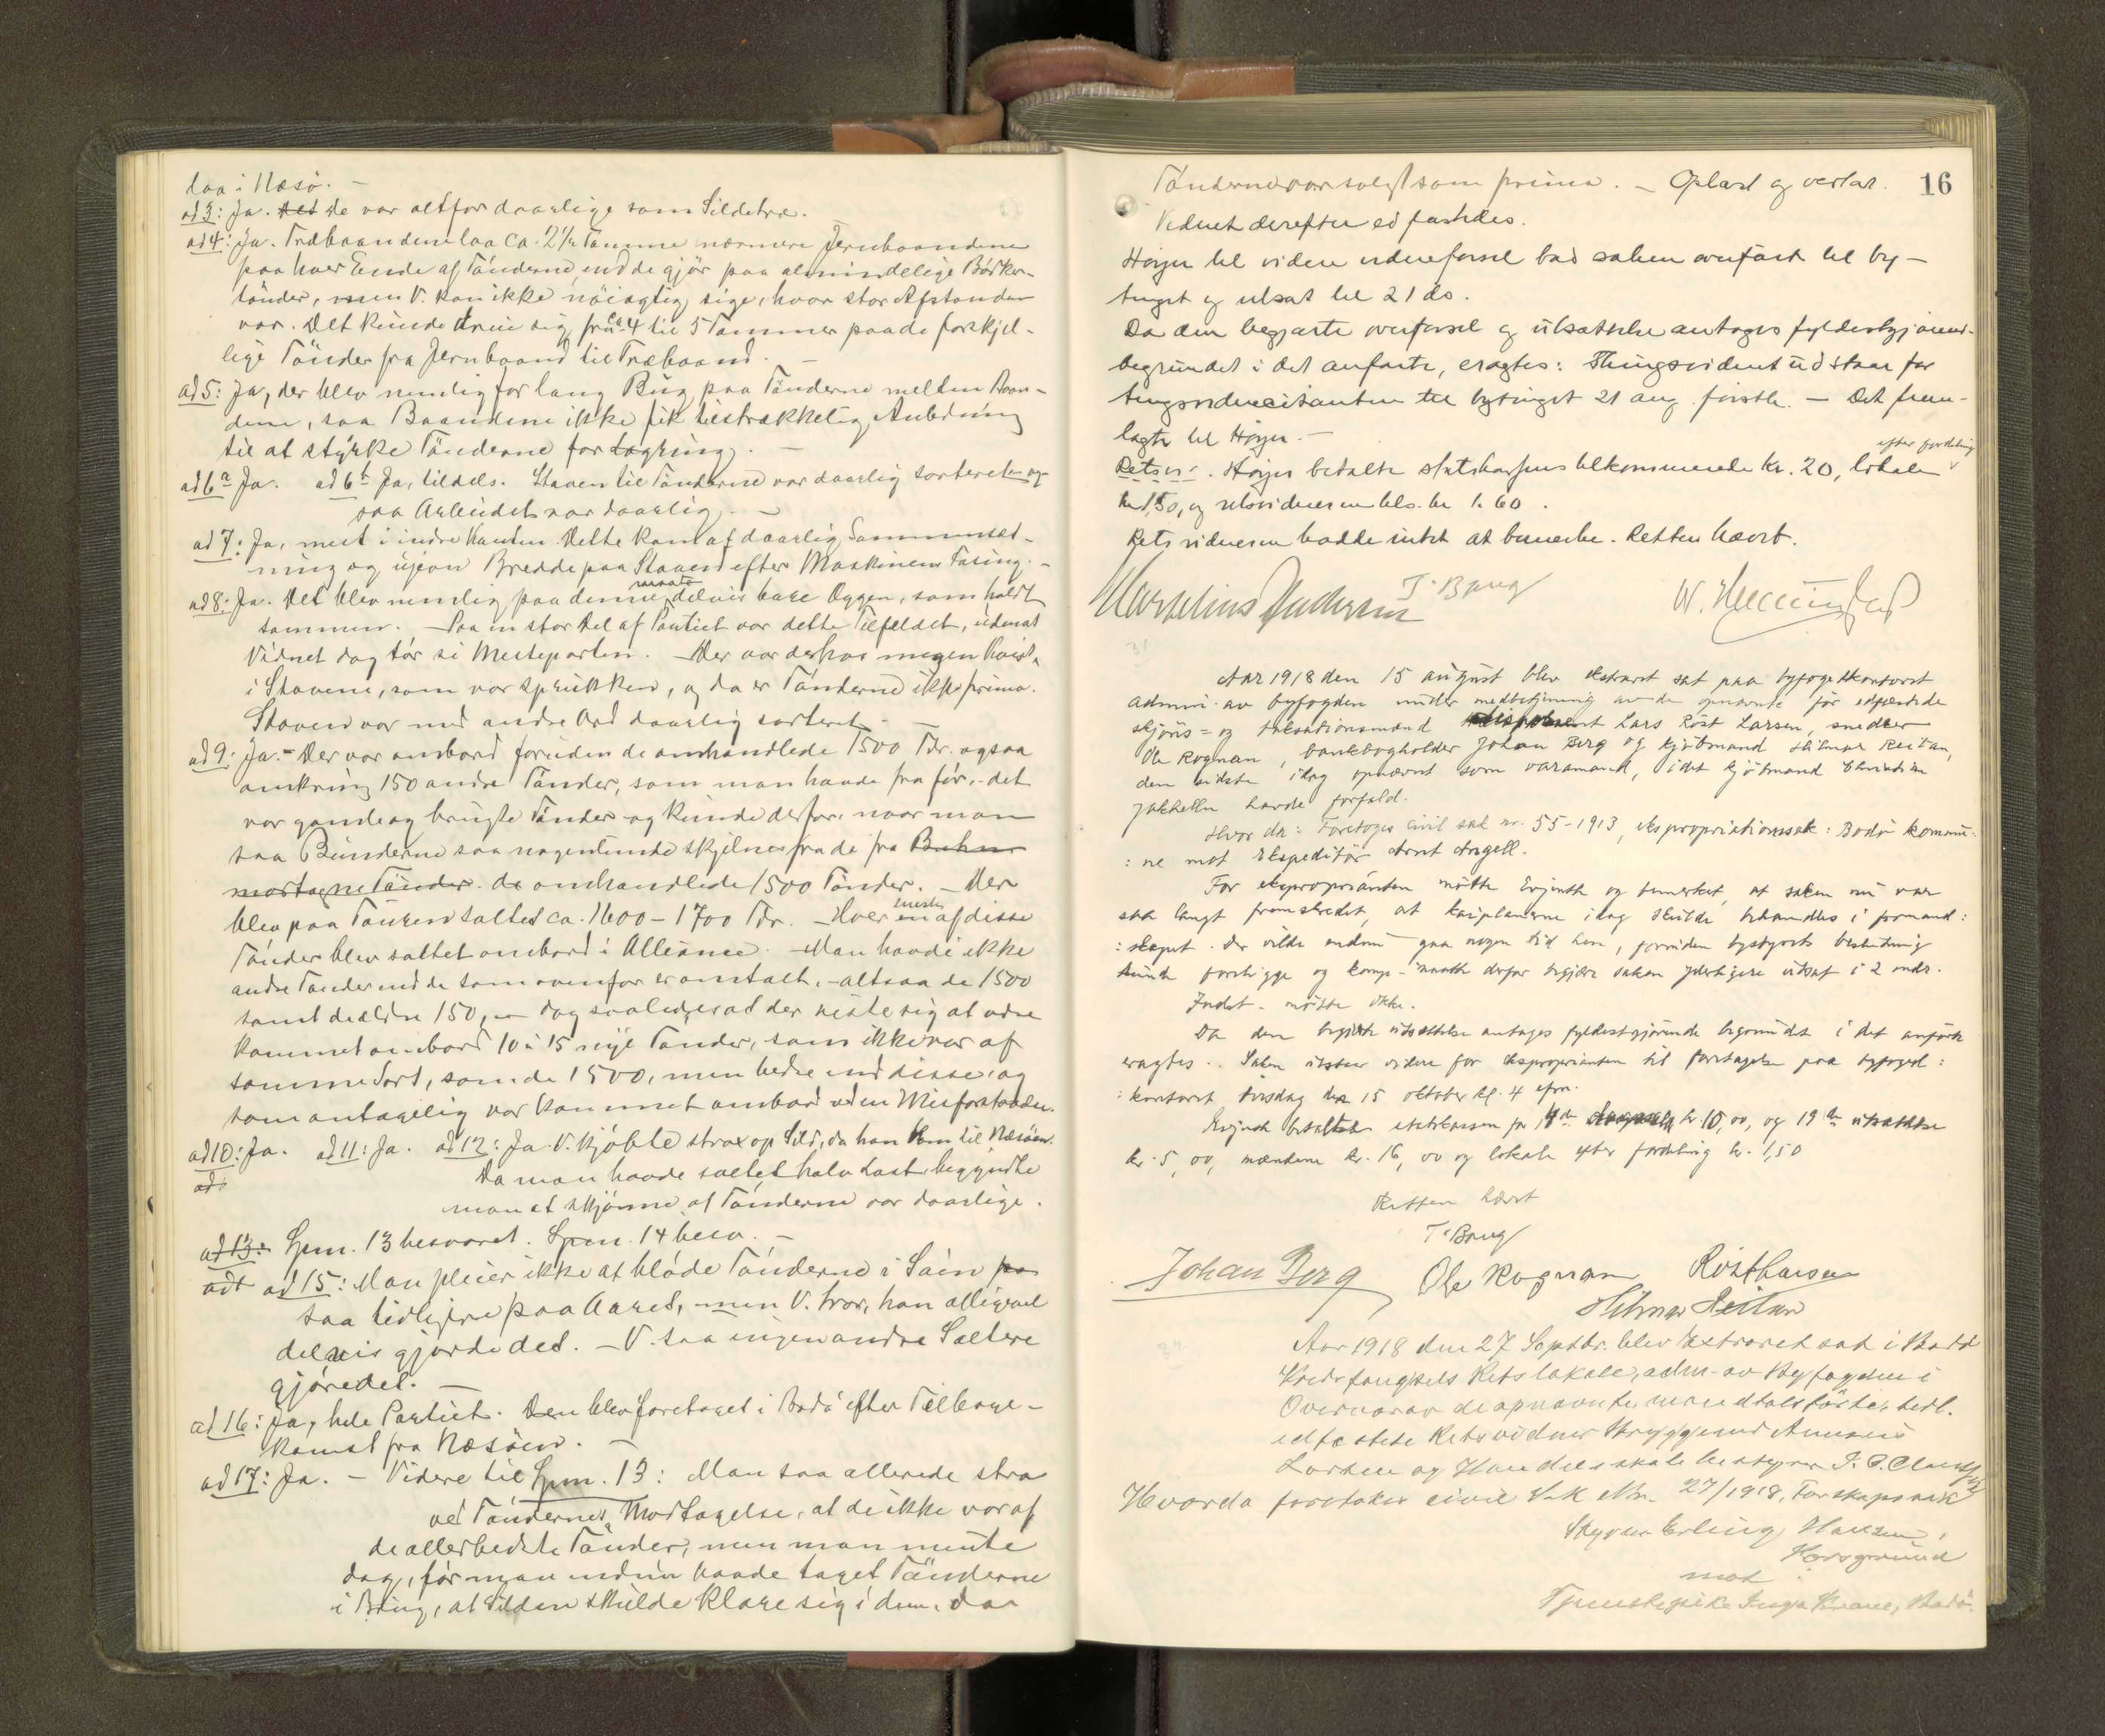 daa i Næsö. —
ad 3: Ja. Det de var altfor daarlige som Sildetræ.
ad 4: Ja. Træbaandene laa ca. 2½ Tomme nærmere Jernbaandene
paa hver Ende af Tönderne, end de gjör paa almindelige Bödker-
tönder, men V. kan ikke nöiagtig sige, hvor stor Afstanden
var. Det kunde dreie sig fra ca 4 til 5 Tommer paa de forskjel-
lige Tönder fra Jernbaand til Træbaand. —
ad 5: Ja, der blev nemlig for lang Bug paa Tönderne mellem Baan-
dene, saa Baandene ikke fik tilstrækkelig Anledning
til at styrke Tönderne for Lagring. —
ad 6a Ja. ad 6b Ja, tildels. Staven til Tönderne var daarlig sorteret og
saa Arbeidet var daarlig. —
ad 7: Ja, mest i indre Kanten. Dette kom af daarlig Sammensæt-
ning og ujevn Bredde paa Staven efter Maskinens Fasing. —
ad 8: Ja. Det blev nemlig paa denne maate delvis bare Eggen, som holdt
sammen. — Paa en stor Del af Partiet var dette Tilfeldet, uden at
Vidnet dog tör si Mesteparten. — Der var derhos megen Kvist
i Stavene, som var sprukken, og da er Tönderne ikke prima.
Staven var med andre Ord daarlig sorteret. —
ad 9: Ja. — Der var ombord foruden de omhandlede 1500 Tdr. ogsaa
omkring 150 andre Tönder, som man havde fra för, - det
var gamle og brugte Tönder og kunde derfor, naar man
saa Bunderne saa nogenlunde skjelnes fra de fra
mostagne Tönder. de omhandlede 1500 Tönder. — Der
blev paa Turen saltet ca. 1600 – 1700 Tdr. — Hver eneste en af disse
Tönder blev saltet ombord i Alliance. — Man havde ikke
andre Tönder end de som ovenfor er omtalt, - altsaa de 1500
samt de ældre 150, — dog saaledes at der viste sig at være
kommet ombord 10 à 15 nye Tönder, som ikke var af
samme Sort, som de 1500, men bedre end disse, og
som antagelig var kommet ombord ved en Misforstaaelse.
ad 10: Ja. ad 11: Ja. ad 12: Ja. V. kjöbte strax op Sild, da han kom til Næsöen.
ad: Da man havde saltet halv Last begyndte
man at skjönne, at Tönderne var daarlige.
ad 13: Spm. 13 besvaret. Spm. 14 besv. —
adt ad 15: Man pleier ikke at blöde Tönderne i Söen pa
saa tidligere paa Aaret, men V. tror, han alligevel
delvis gjorde det. — V. saa ingen andre Saltere
gjöre det. —
ad 16: Ja, hele Partiet. Den blev foretaget i Bodö efter Tilbage-
komst fra Næsöen. —
ad 17: Ja. — Videre til Spm. 13: Man saa allerede stra
ved Töndernes Modtagelse, at de ikke var af
de allerbedste Tönder, men man mente
dog, för man endnu havde taget Tönderne
i Brug, at Silden skulde klare sig i dem, da
16
Tönderne var solgt som prima. — Oplæst og vedtat.
Vidnet derefter edfæstedes.
Höyer til videre vidneförsel bad saken overfört til by-
tinget og utsat til 21 ds.
Da den begjærte overförsel og utsættelse antages fyldestgjörend-
begrundet i det anförte, eragtes: Thingsvidnet udstaar for
tingsvidnecitanten til bytinget 21 aug. förstk. — Det frem-
lagte til Höyer. —
Retsv: -. Höyer betalte statskassens tilkommende kr. 20, lokale efter fordeling
kr 1,50, og retsvidnerne tils. kr 1.60.
Retsvidnerne hadde intet at bemerke. Retten hævet.
T. Brug
Marselius Andersen
31
Aar 1918 den 15 august blev ekstraret sat paa byfogedkontoret
admini. av byfogden under medbetjening av de opnævnte för edfæstede
skjöns= og taksationsmænd Lars Röst Larsen, snedker
Ole Rognan, bankbogholder Johan Berg og kjöbmand Hilmar Reitan,
den sidste idag opnævnt som varamand, idet kjöbmand Christian
Jakhelln havde forfald.
Hvor da: Foretoges civil sak nr. 55-1913, ekspropriationssak: Bodö kommu-
:ne mot Ekspeditör Arnt Angell.
For eksproprianten mötte Evjenth og bemerket, at saken nu var
saa langt fremskredet, at kaiplanerne idag skulde behandles i formand:
:skapet. Der vilde endnu gaa nogen tid hen, forinden bystyrets beslutning
kunde foreligge og komp. maatte derfor begjære saken yderligere utsat i 2 mdr.
Indst. mötte ikke.
Da den begjærte utsættelse antages fyldestgjörende begrundet i det anförte
eragtes: Saken utstaar videre for eksproprianten til foretagelse paa byfoged:
:kontoret tirsdag den 15 oktober kl. 4 efm.
Evjenth betalte statskassen for kr 10,00, og 19de utsættelse
kr. 5,00, mændene kr. 16,00 og lokale efter fordeling kr. 1,50
Retten hævet
T. Brug
Johan Berg Ole Rognan Röst Larsen
Hilmar Reitan
32
Aar 1918 den 27 Septbr. blev Extraret sat i Bodö
Kredsfængsels Retslokale, adm. av Byfogden i
Overvær av de opnævnte, mandtalsförte, tidl.
edfæstede Retsvidner Bryggemd Amasius
Larsen og Handelsskole bestyrer J. C.
Hvorda foretokes civil Sak No. 27/1918, Farskapssak
Styrm. Erling Hansen,
Porsgrund
mot
Tjenestepike Inga Krane, Bodö.